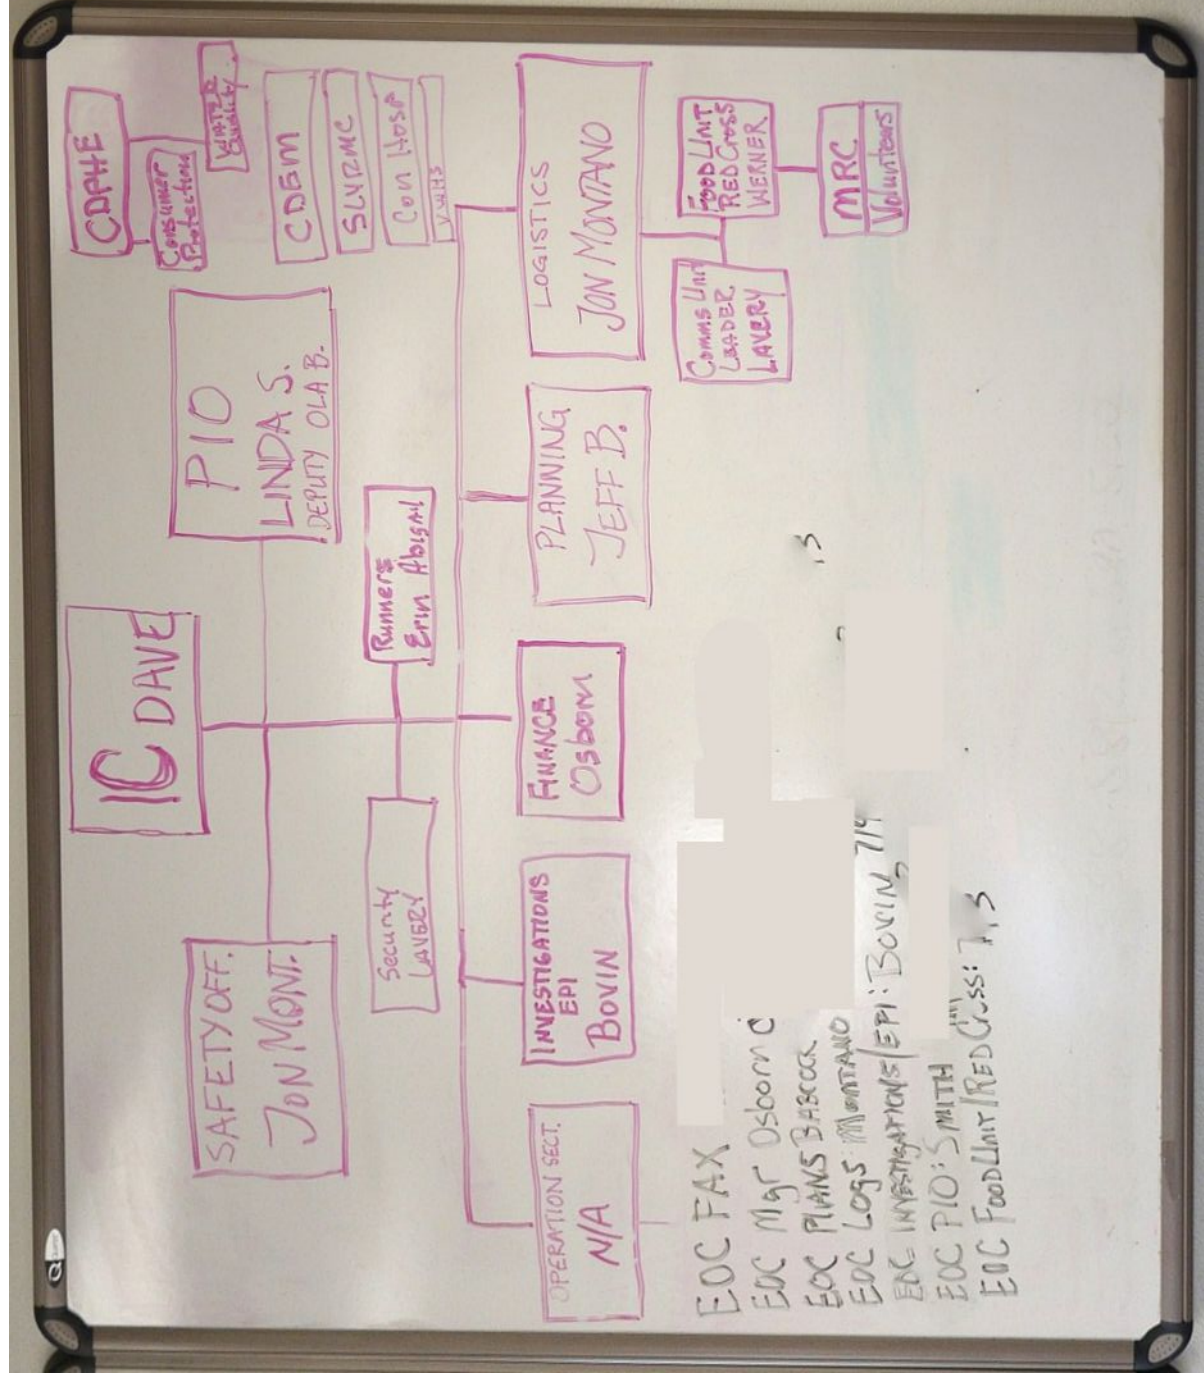 IC DAVE
SAFETY OFF.
JON MONT.
PIO
LINDA S.
DEPUTY OLA B.
CDPHE
Consumer
Protection
WATER
Quality
CDEM
SLVRMC
Con Hosp
VWHS
Security
LAVERY
Runners
Erin Abigail
OPERATION SECT.
N/A
INVESTIGATIONS
EPI
BOVIN
FINANCE
Osborn
PLANNING
JEFF B.
LOGISTICS
JON MONTANO
Comms Unit
LEADER
LAVERY
FOOD UNIT
RED CROSS
WERNER
MRC
Volunteers
EOC FAX
EOC Mgr Osborn
EOC PLANS BABCOCK
EOC Logs: MONTANO
EOC INVESTIGATIONS/EPI: BOVIN 719
EOC PIO: SMITH
EOC FOOD UNIT/RED CROSS: